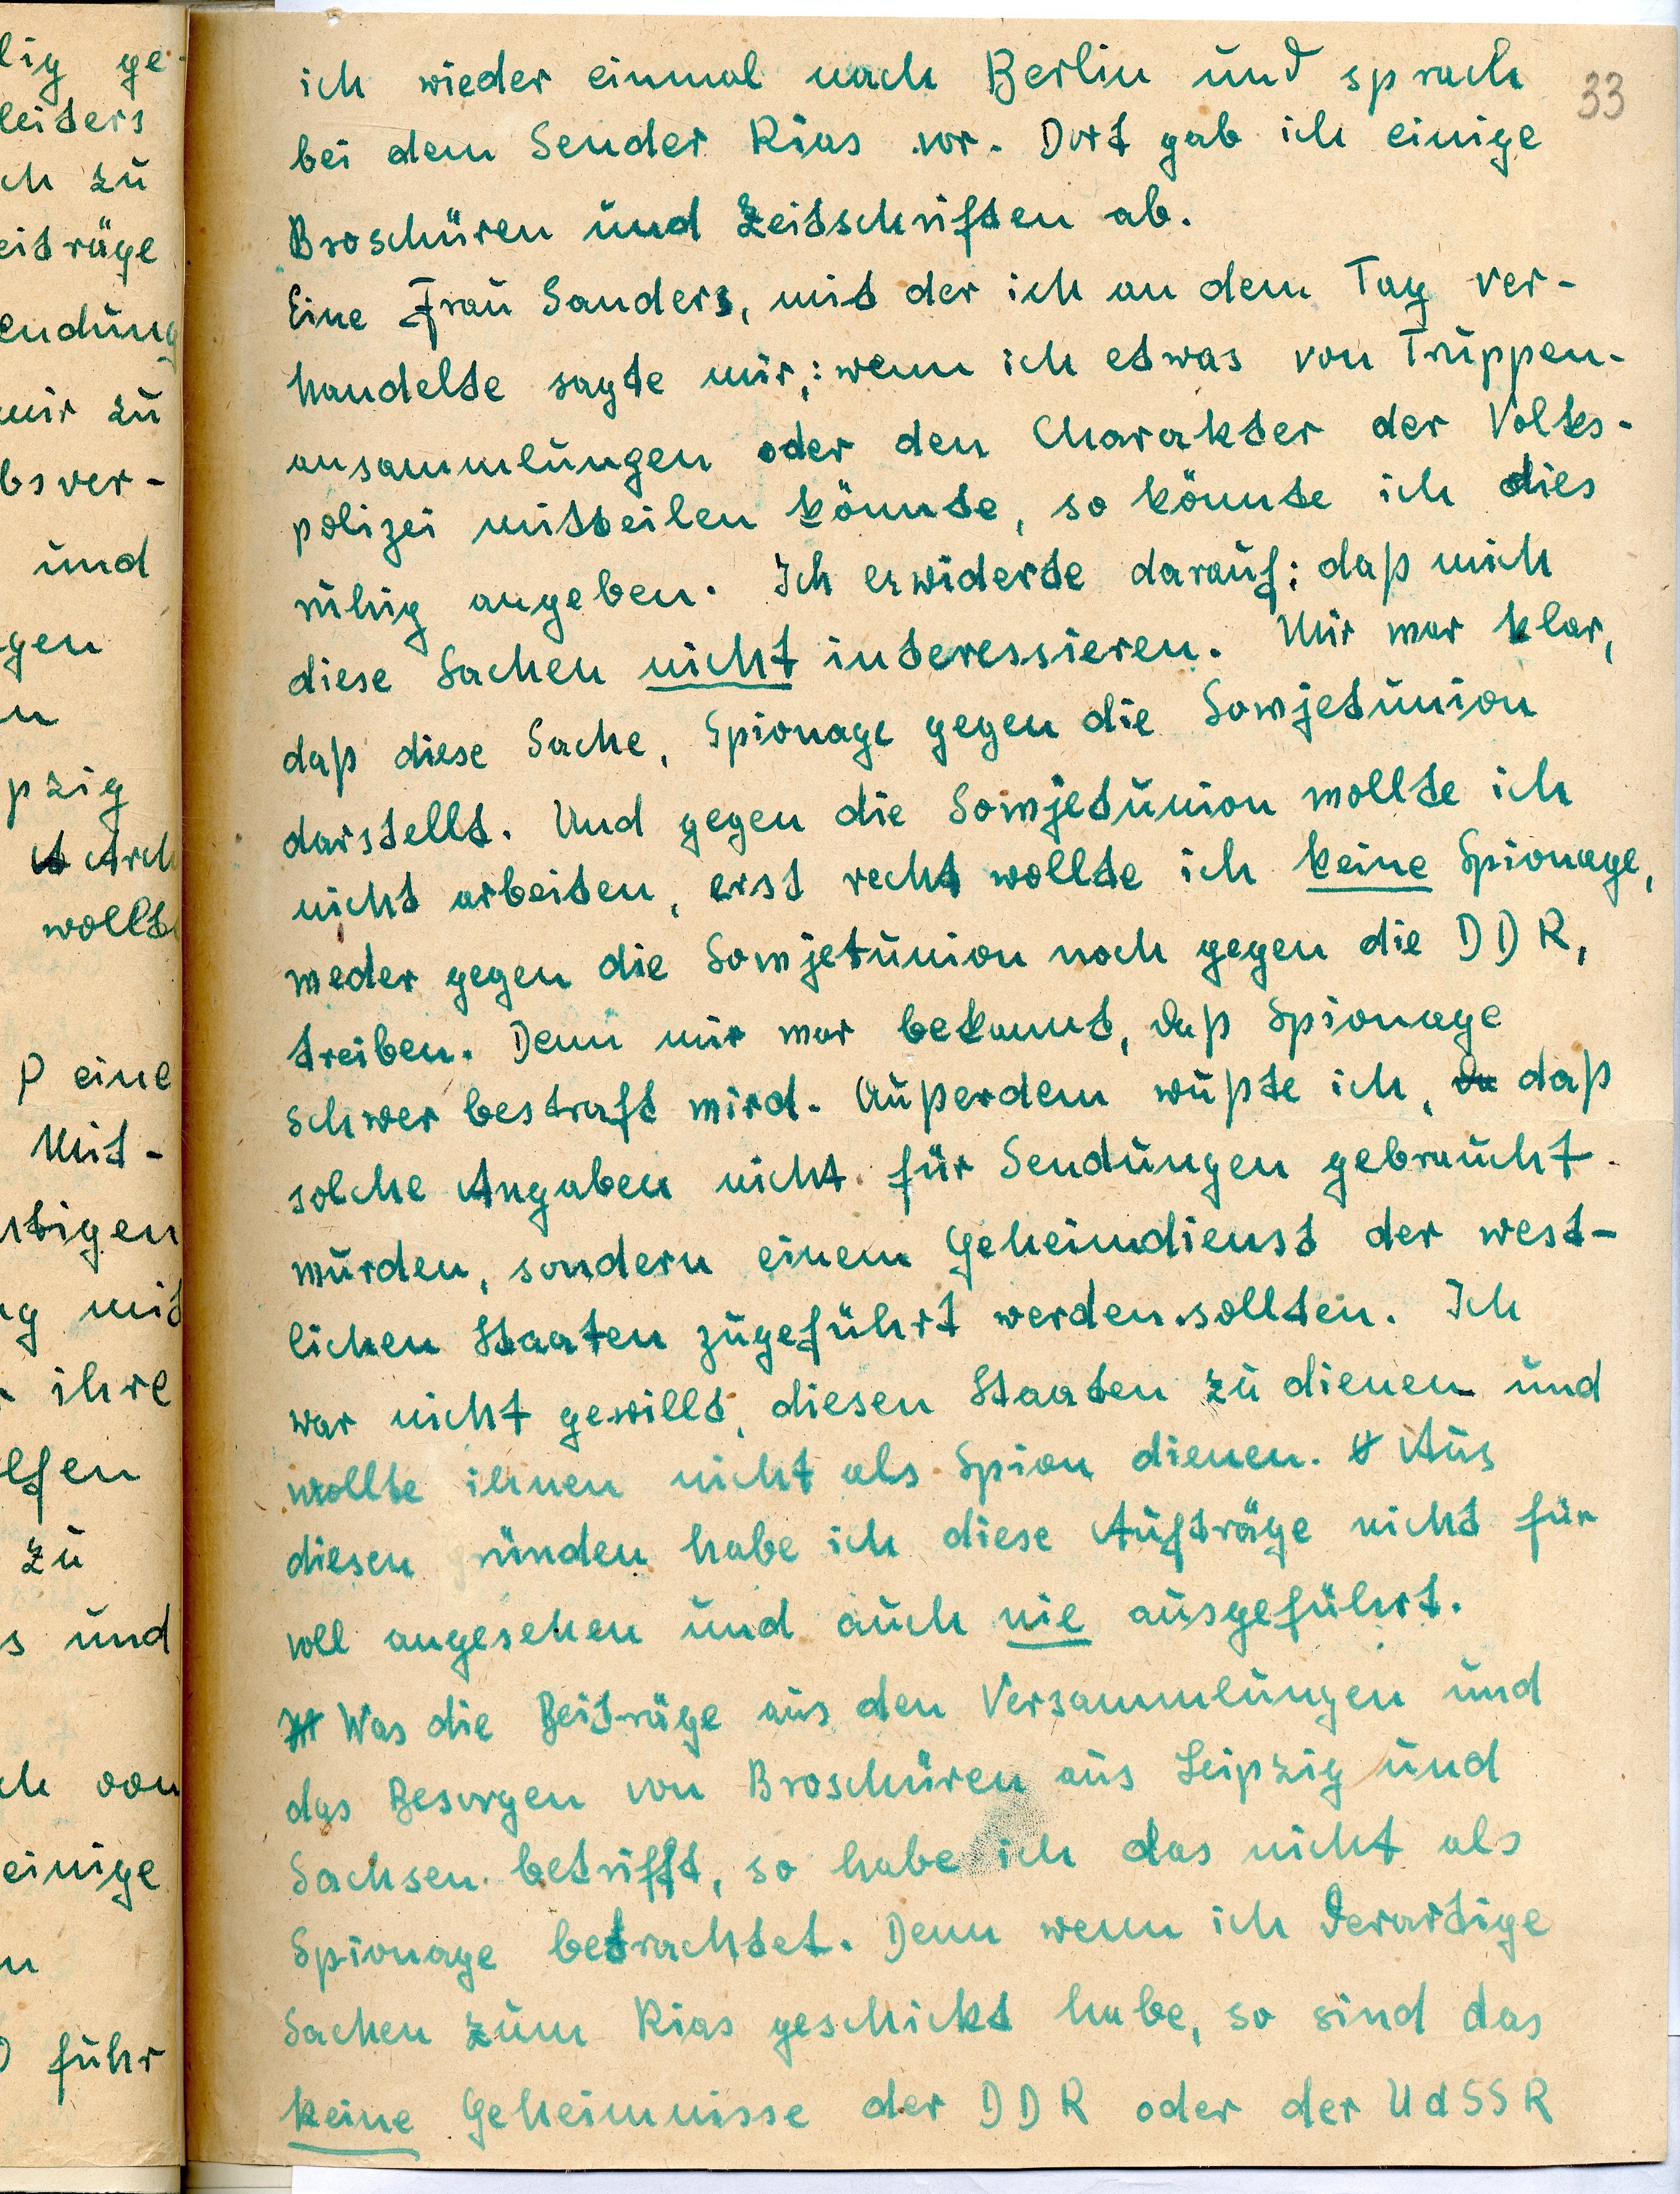 lig ge-
leiters
ch zu
eiträge
endung
mir zu
bsver-
und
gen
n
pzig
Arch
wollte
P eine
Mit-
stigen
ng mit
r ihre
elfen
zu
s und
ch von
einige
n
D fuhr
33
ich wieder einmal nach Berlin und sprach
bei dem Sender Rias vor. Dort gab ich einige
Broschüren und Zeitschriften ab.
Eine Frau Sanders, mit der ich an dem Tag ver-
handelte sagte mir,: wenn ich etwas von Truppen-
ansammlungen oder den Charakter der Volks-
polizei mitteilen könnte, so könnte ich dies
ruhig angeben. Ich erwiderte darauf: daß mich
diese Sachen nicht interessieren. Mir war klar,
daß diese Sache, Spionage gegen die Sowjetunion
darstellt. Und gegen die Sowjetunion wollte ich
nicht arbeiten, erst recht wollte ich keine Spionage,
weder gegen die Sowjetunion noch gegen die DDR,
treiben. Denn mir war bekannt, daß Spionage
schwer bestraft wird. Außerdem wußte ich, da daß
solche Angaben nicht für Sendungen gebraucht
würden, sondern einem Geheimdienst der west-
lichen Staaten zugeführt werden sollten. Ich
war nicht gewillt, diesen Staaten zu dienen und
wollte ihnen nicht als Spion dienen. Aus
diesen gründen habe ich diese Aufträge nicht für
voll angesehen und auch nie ausgeführt.
Was die Beiträge aus den Versammlungen und
das Besorgen von Broschüren aus Leipzig und
Sachsen betrifft, so habe ich das nicht als
Spionage betrachtet. Denn wenn ich derartige
Sachen zum Rias geschickt habe, so sind das
keine Geheimnisse der DDR oder der UdSSR